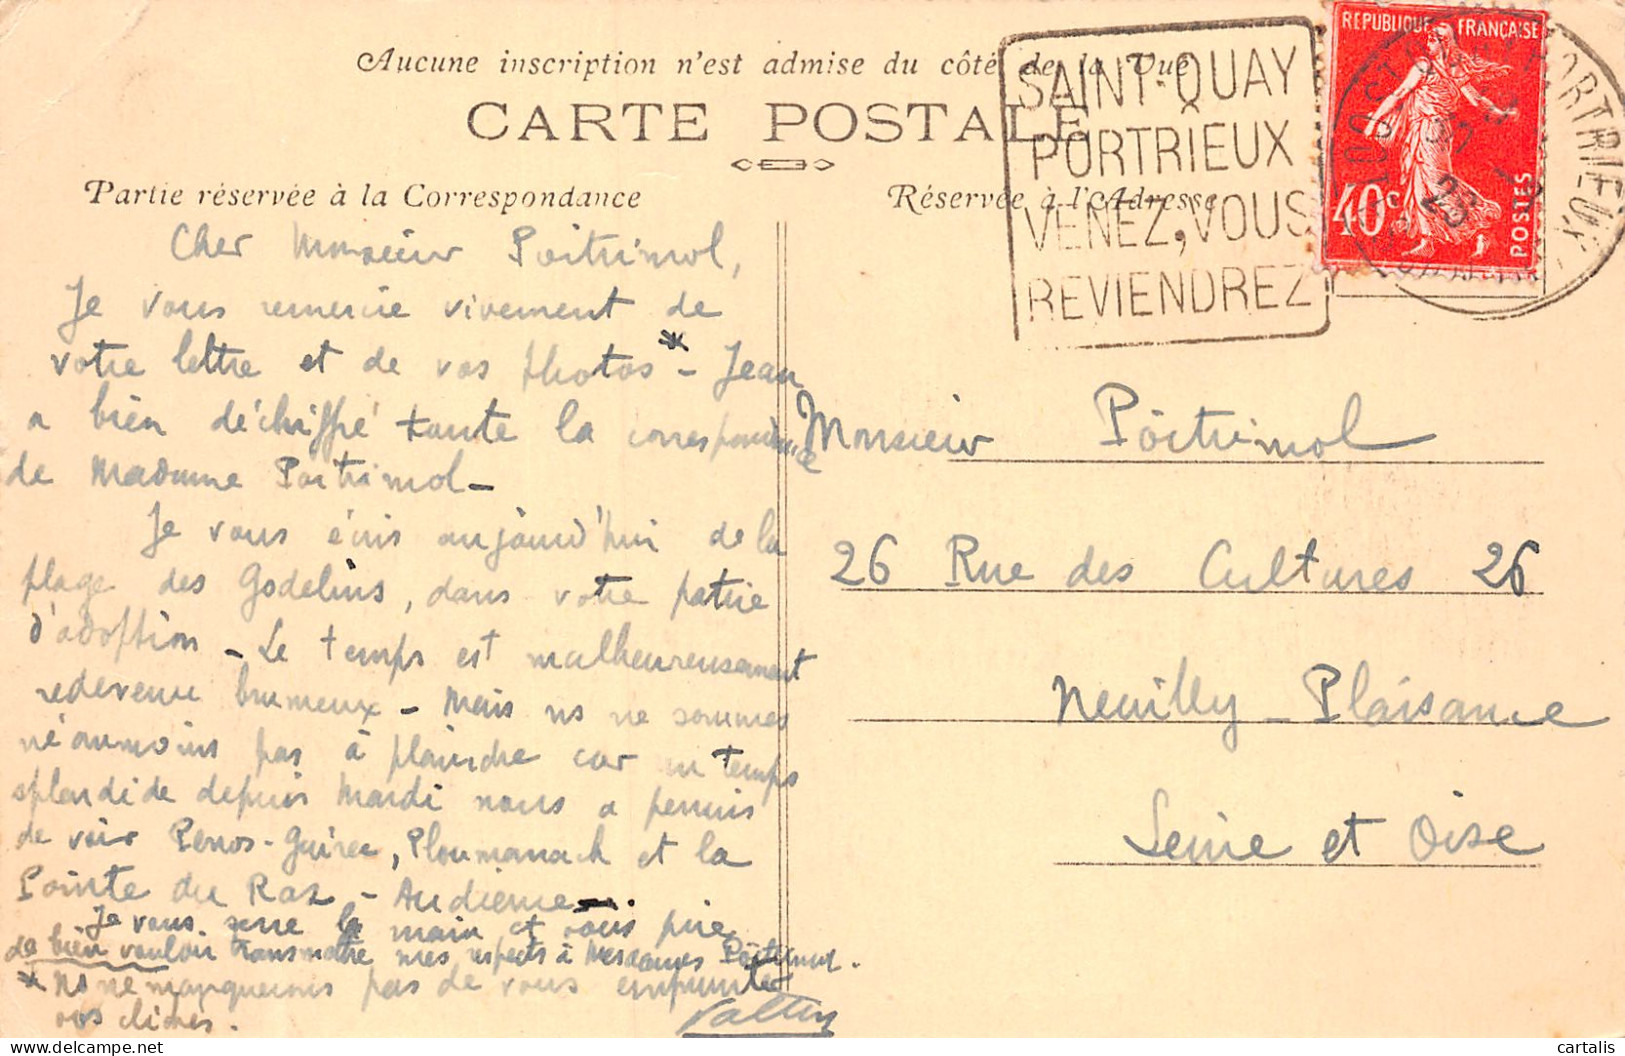 Aucune inscription n'est admise du côté de la Vue
CARTE POSTALE
Partie réservée à la Correspondance
Réservée à l'Adresse
SAINT-QUAY
PORTRIEUX
VENEZ, VOUS
REVIENDREZ
REPUBLIQUE FRANÇAISE
40c
POSTES
PORTRIEUX
Cher Monsieur Poitrimol,
Je vous remercie vivement de
votre lettre et de vos photos * - Jean
a bien déchiffré toute la correspondance
de Madame Poitrimol -
Je vous écris aujourd'hui de la
plage des Godelins, dans votre patrie
d'adoption - Le temps est malheureusement
redevenu brumeux - Mais ns ne sommes
néanmoins pas à plaindre car un temps
splendide depuis Mardi nous a permis
de voir Perros-Guirec, Ploumanach et la
Pointe du Raz - Audierne -.
Je vous serre la main et vous prie
de bien vouloir transmettre mes respects à Mesdames Poitrimol.
* Ns ne manquerons pas de vous emprunter
vos clichés.
Monsieur Poitrimol
26 Rue des Cultures 26
Neuilly-Plaisance
Seine et Oise
cartalis